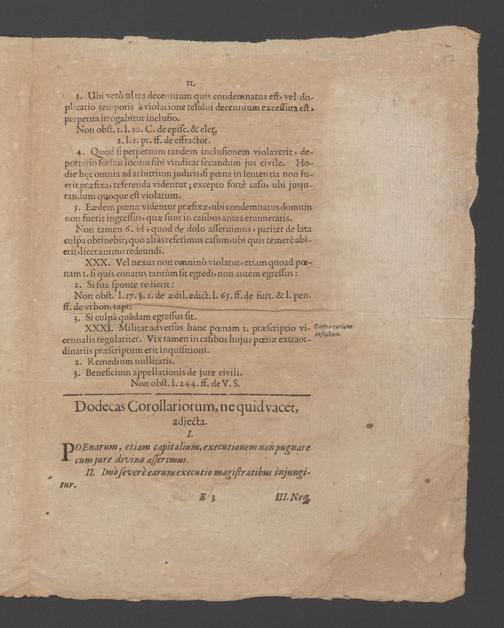 II.
3. Ubi verò ultra decennium quis condemnatus est, vel du-
plicatio temporis à violatione residui decennium excessura est,
perpetua irrogabitur inclusio.
Non obst. l. l. 10. C. de episc. & cler.
2. l. 1. pr. ff. de effractor.
4. Quod si perpetuam tandem inclusionem violaverit, de-
portatio forsan locum sibi vindicat secundum jus civile. Ho-
die hęc omnia ad arbitrium judicis, si pœna in sententia non fu-
erit præfixa, referenda videntur; excepto fortè casu, ubi jusju-
randum quoque est violatum.
5. Eædem pœnæ videntur præfixæ, ubi condemnatus domum
non fuerit ingressus, quæ sunt in casibus antea enumeratis.
Non tamen 6. id, quod de dolo asseruimus, pariter de lata
culpa obtinebit; quo alias referimus casum, ubi quis temerè abi-
erit, licet animo redeundi.
XXX. Vel nexus non omninò violatur, etiam quoad pœ-
nam 1. si quis conatus tantùm sit egredi, non autem egressus:
2. Si sua sponte redierit:
Non obst. l. 17. §. 1. de ædil. edict. l. 65. ff. de furt. & l. pen.
ff. de vi bon. rapt.
3. Si culpâ quâdam egressus sit.
XXXI. Militat adversus hanc pœnam 1. præscriptio vi-
cennalis regulariter. Vix tamen in casibus hujus pœnæ extraor-
dinariis præscriptum erit inquisitioni.
Contra rationem
inflictam.
2. Remedium nullitatis.
3. Beneficium appellationis de jure civili.
Non obst. l. 244. ff. de V. S.
Dodecas Corollariorum, ne quid vacet,
adjecta.
I.
POEnarum, etiam capitalium, executionem non pugnare
cum jure divino asserimus.
II. Imò severè earum executio magistratibus injungi-
tur.
B 3
III. Neq;